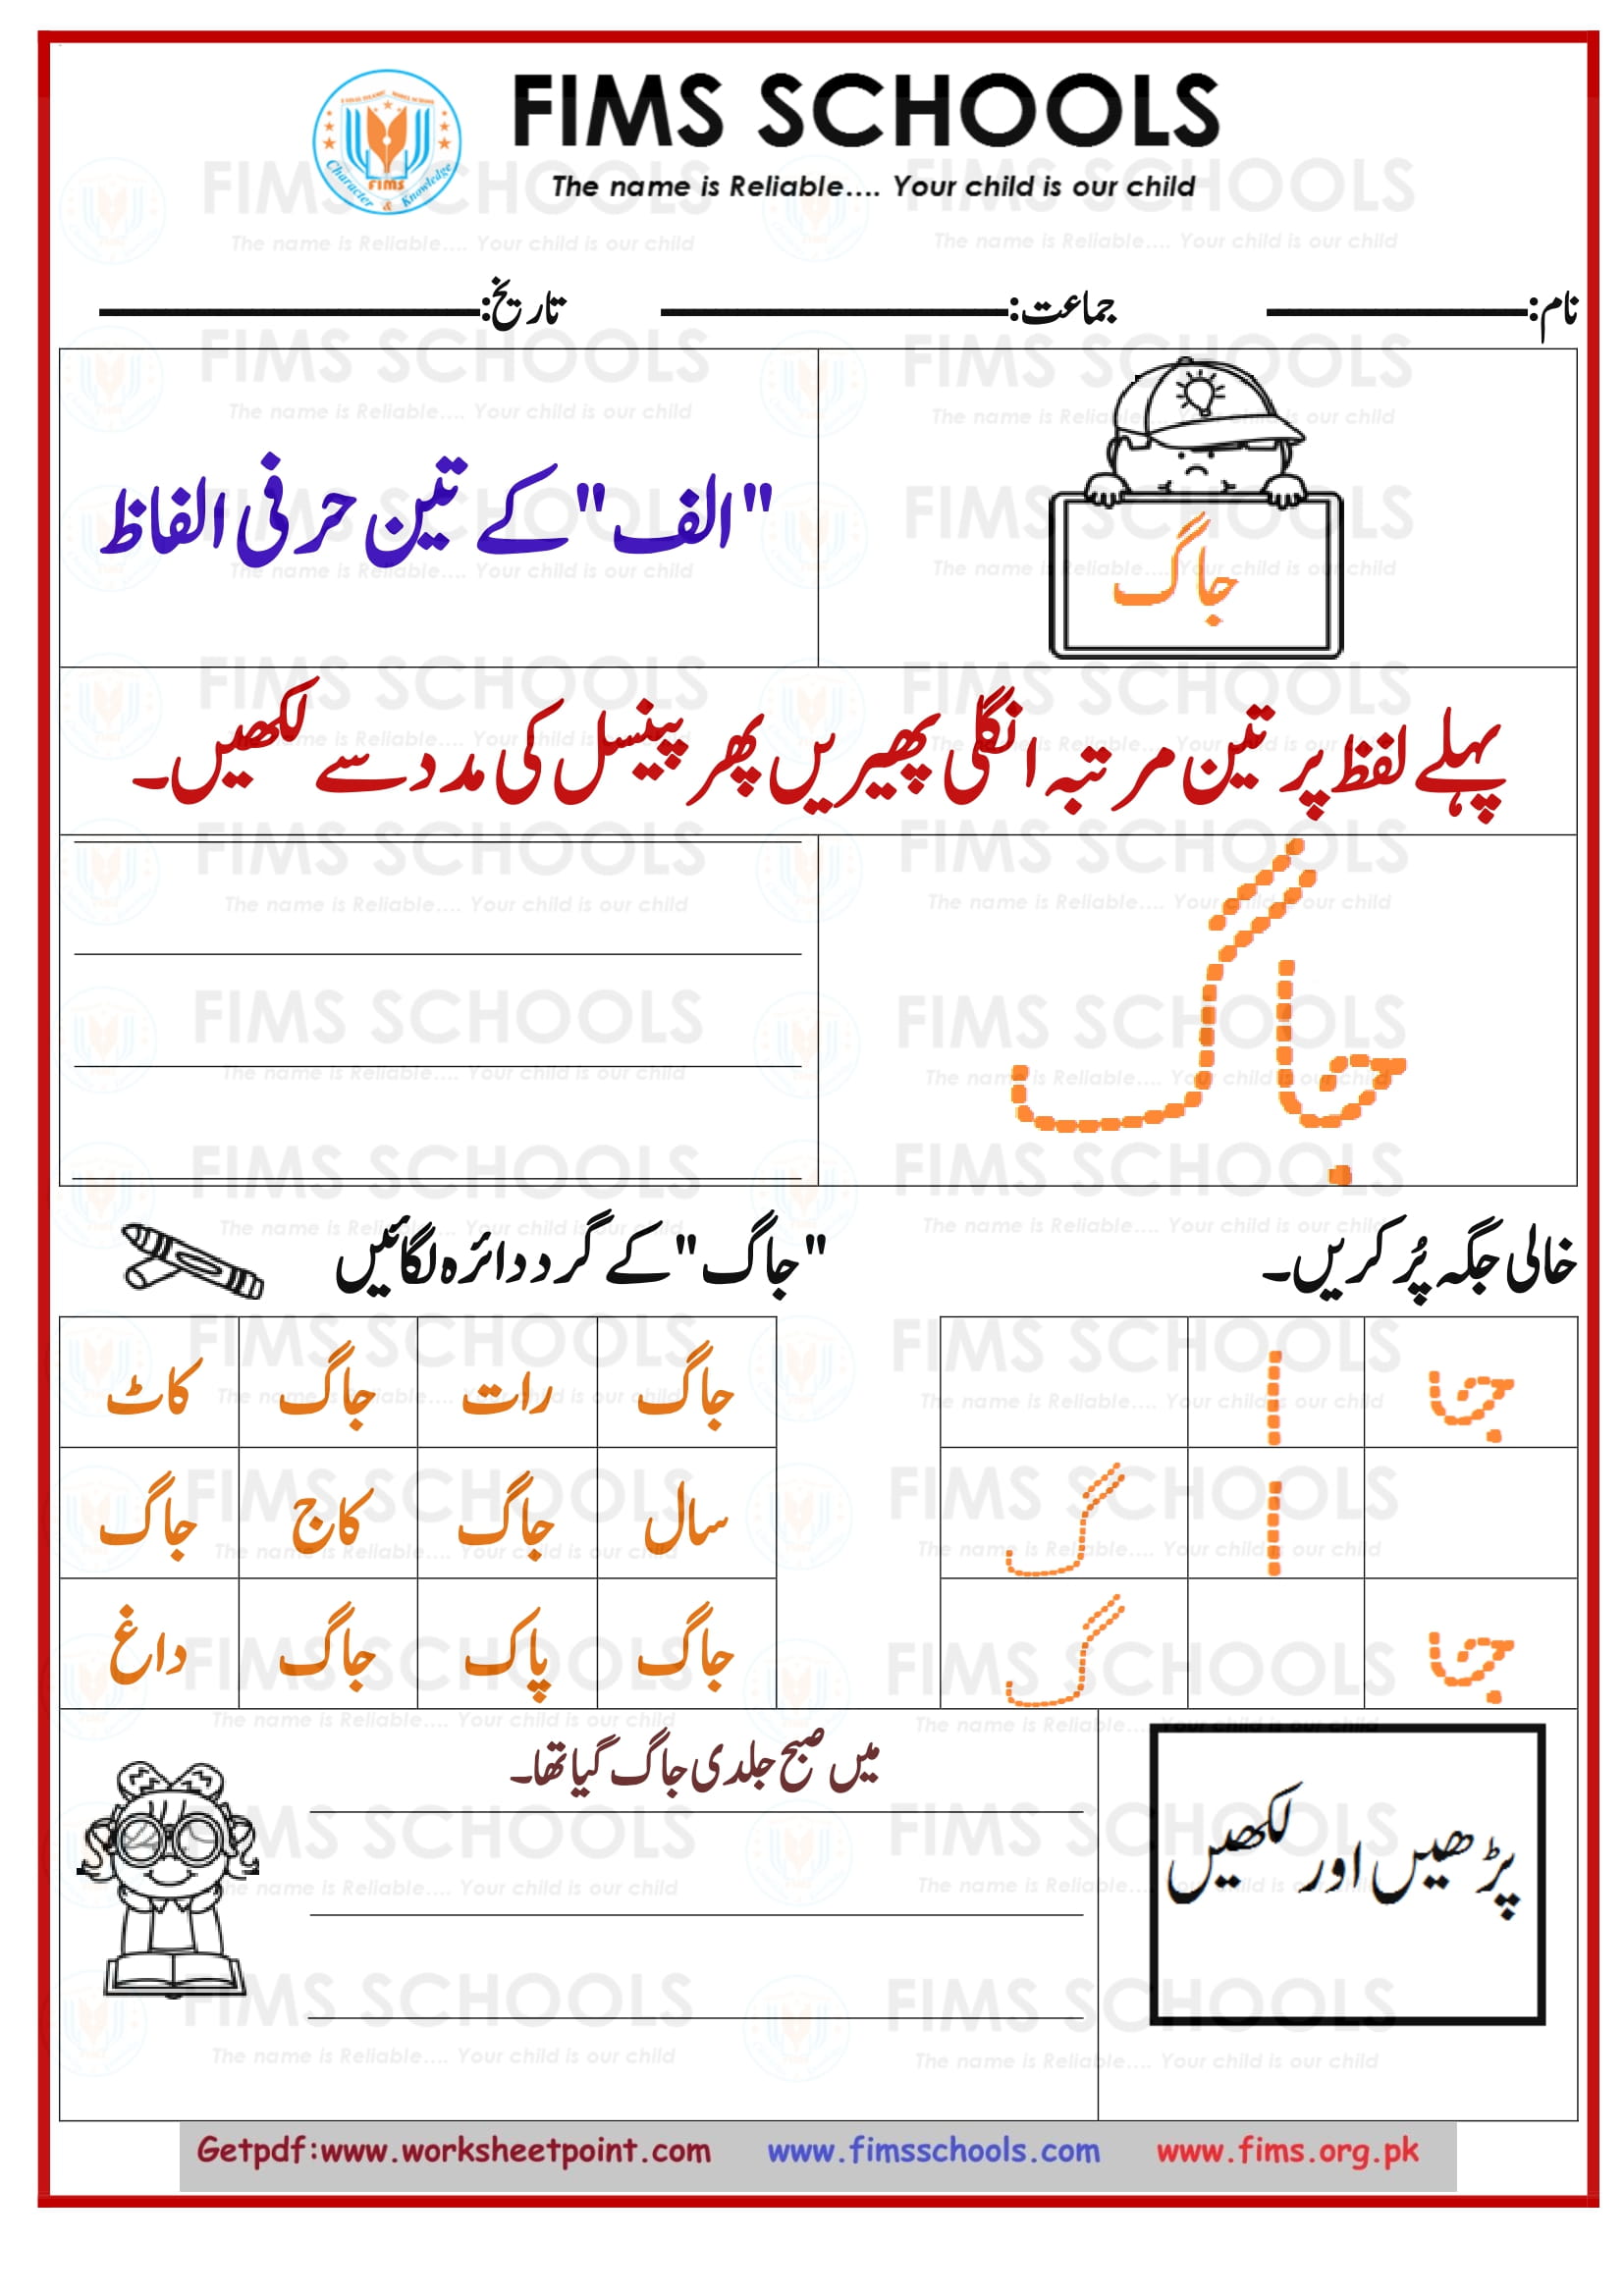 FIMS SCHOOLS
The name is Reliable.... Your child is our child
Character & Knowledge
FIMS
نام: جماعت: تاریخ:
جاگ
"الف" کے تین حرفی الفاظ
پہلے لفظ پر تین مرتبہ انگلی پھیریں پھر پینسل کی مدد سے لکھیں۔
جاگ
خالی جگہ پُر کریں۔
جا ا
ا گ
جا گ
"جاگ" کے گرد دائرہ لگائیں
جاگ رات جاگ کاٹ
سال جاگ کاج جاگ
جاگ پاک جاگ داغ
پڑھیں اور لکھیں
میں صبح جلدی جاگ گیا تھا۔
Getpdf:www.worksheetpoint.com www.fimsschools.com www.fims.org.pk